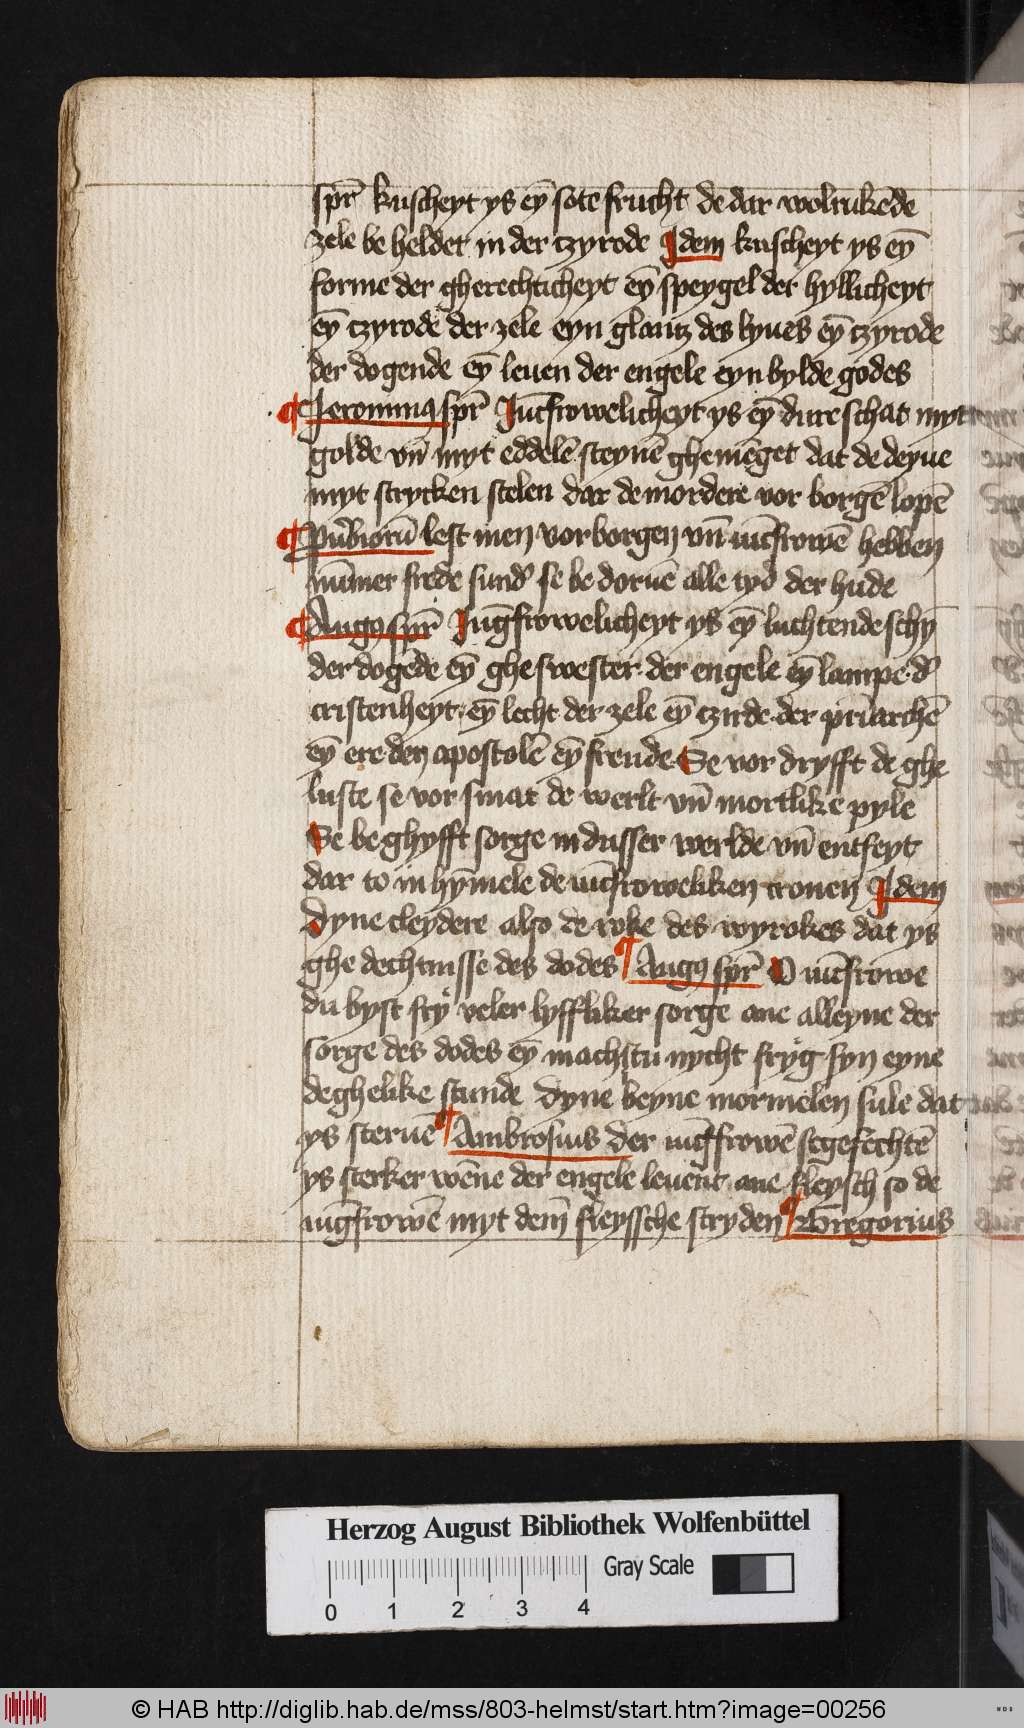 spr̄ kuscheyt ys eȳ sote frucht de dar wolrukēde
zele be heldet in der czyrode Idem kuscheyt ys eȳ
forme der gherechticheyt eȳ speygel der hyllicheyt
eȳ czyrode der zele eyn glantz des lyues eȳ czyrode
der dogende eȳ leuen der engele eyn bylde godes
¶ Ieronimꝰ spr̄ Iūcfrowelicheyt ys eȳ dure schat myt
golde vn̄ myt eddelē steynē ghemēget dat de deyue
myt strycken stelen dar de mordere vor borgē lopē
lest men vorborgen vn̄ iūcfrowē hebben
nūmer frede sund' se be doruē alle tyd der hude
¶ Augꝯ spr̄ Iūgfrowelicheyt ys eȳ luchtende schȳ
der dogēde eȳ ghe swester der engele eȳ lampe d'
cristenheyt eȳ lecht der zele eȳ czirde der
eȳ ere den apostolē eȳ freude Se vor dryfft de ghe
luste se vor smat de werlt vn̄ mortlike pyle
Se be ghyfft sorge in dusser werlde vn̄ entfeyt
dar to in hȳmele de iūcfroweliken cronen Idem
Dyne cleydere also de roke des wyrokes dat ys
ghe dechtnisse des dodes ¶ Augꝯ spr̄ O iūcfrowe
du byst fry veler lyffliker sorge ane alleyne der
sorge des dodes eȳ machstu nycht fryg syn eyne
deghelike stunde Dyne beyne mormelen sule dat
ys steruē ¶ Ambrosius der iūgfrowē
ys sterker wēne der engele leuent ane fleysch so de
iūgfrowē myt dem̄ fleyssche stryden ¶ Gregorius
Herzog August Bibliothek Wolfenbüttel
Gray Scale
0 1 2 3 4
© HAB http://diglib.hab.de/mss/803-helmst/start.htm?image=00256